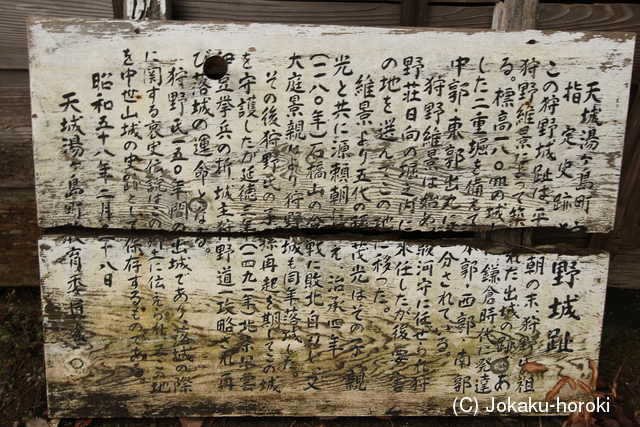 天城湯ケ島町
指定史跡 野城趾
この狩野城趾は平 朝の末狩野 祖
狩野維景によって築 れた出城の跡 あ
る。標高一八〇mの城 鎌倉時代 発達
した二重堀を備えて 本郭・西郭・南郭
中郭・東郭出丸に 分されている。
狩野維景は 駿河守に任ぜられ狩
野荘日向の堀之内に 住したが後
の地を選んでこの地に移った。
維景より五代の 茂光はその子 親
光と共に源頼朝に 治承四年
(一一八〇年)石橋山の合戦に敗北自刃し 又
大庭景親に 狩野城も同年落城した。
その後狩野氏の子孫再起を期してこの城
を守護したが延徳三年(一四九一年)北条早雲
伊豆挙兵の折城主狩野道一攻略され再
び落城の運命となる。
狩野氏一五〇年間の出城であり落城の際
に関する哀史伝説はこの郷土に伝えられ 地
を中世山城の史跡として保存するものである。
昭和五十八年二月二十八日
天城湯ケ島町教育委員会
(C) Jokaku-horoki